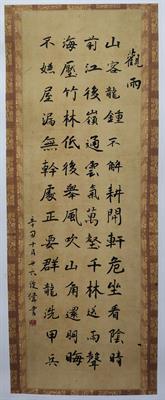 觀雨
山客龍鍾不解耕開軒危坐看陰時
前江後嶺通雲氣萬壑千林送雨聲
海壓竹林低後舉風吹山角還明晦
不嫌屋漏無幹處正要群龍洗甲兵
辛丑十月廿六 書